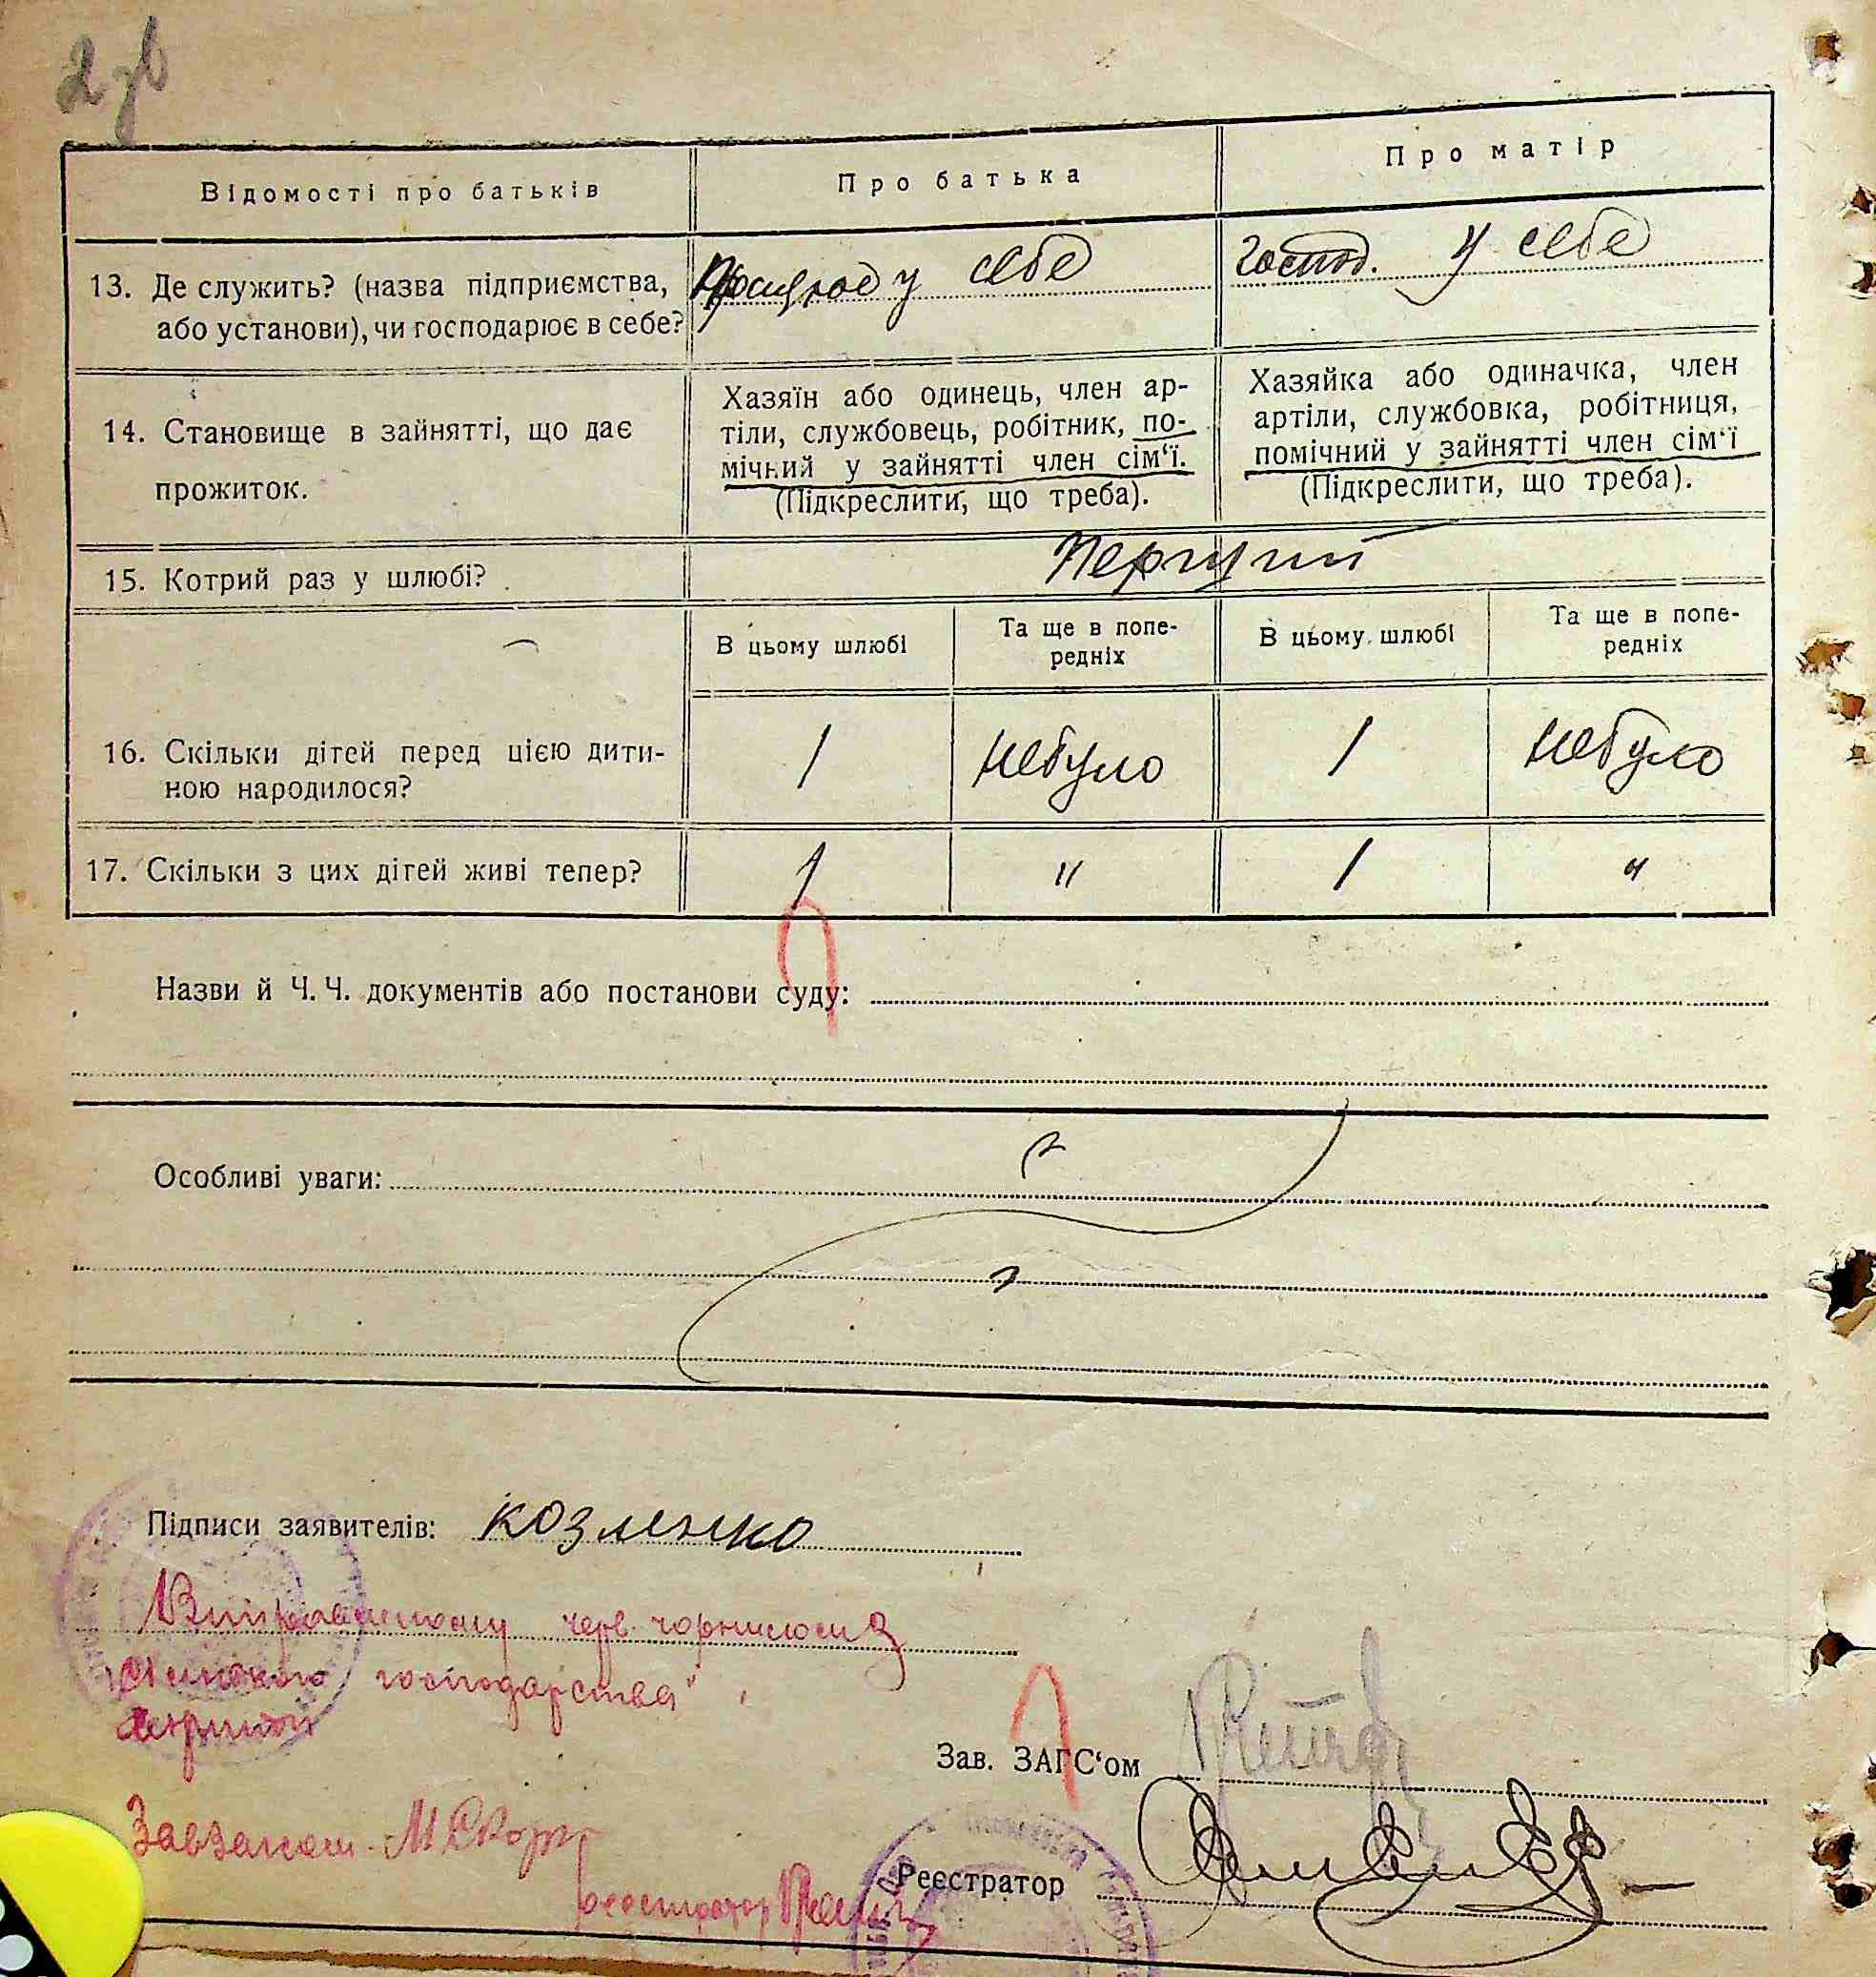 2 зв
Відомості про батьків
Про батька
Про матір
13. Де служить? (назва підприємства,
або установи), чи господарює в себе?
Працює у себе
Господ. у себе
14. Становище в зайнятті, що дає
прожиток.
Хазяїн або одинець, член ар-
тіли, службовець, робітник, по-
мічний у зайнятті член сім‘ї.
(Підкреслити, що треба).
Хазяйка або одиначка, член
артіли, службовка, робітниця,
помічний у зайнятті член сім‘ї
(Підкреслити, що треба).
15. Котрий раз у шлюбі?
Перший
В цьому шлюбі
Та ще в попе-
редніх
В цьому шлюбі
Та ще в попе-
редніх
16. Скільки дітей перед цією дити-
ною народилося?
1
небуло
1
небуло
17. Скільки з цих дітей живі тепер?
1
"
1
"
Назви й Ч. Ч. документів або постанови суду:
Особливі уваги:
Підписи заявителів: козленко
черв. чорнилом з
господарства"
Зав. ЗАГС‘ом
Реєстратор
реєстратор